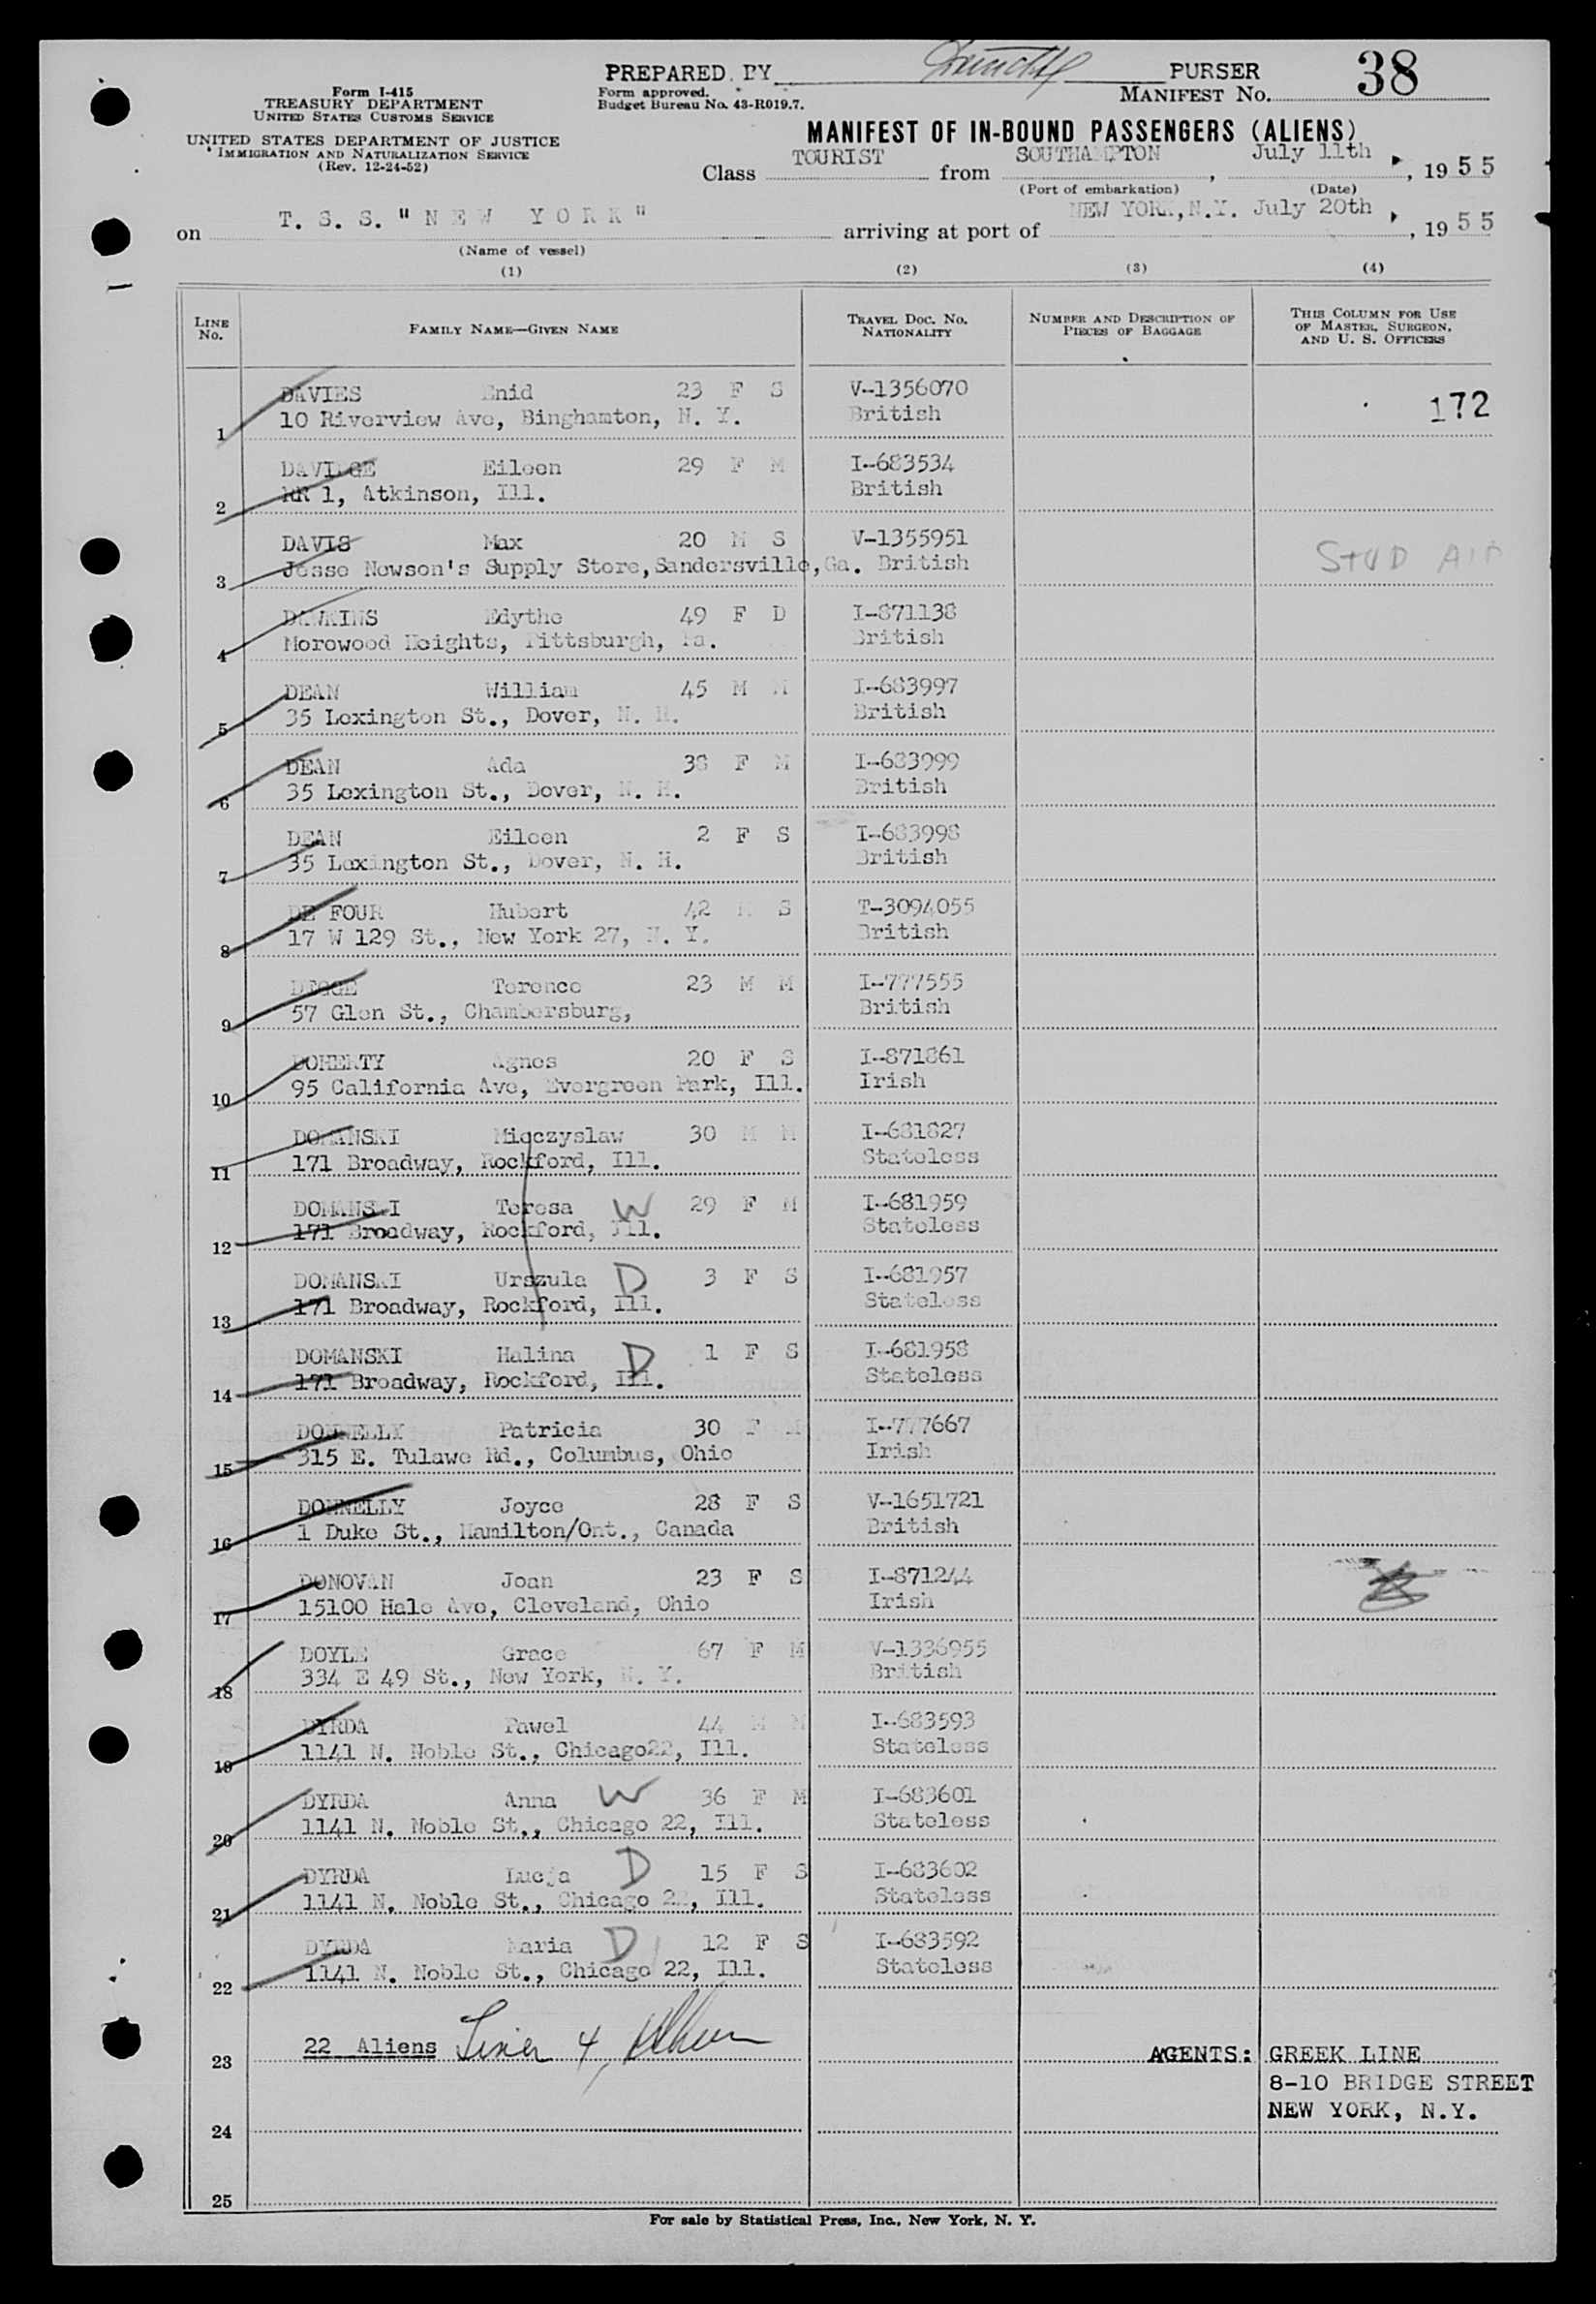 PREPARED BY PURSER 38
Form I-415
TREASURY DEPARTMENT
UNITED STATES CUSTOMS SERVICE
Form approved.
Budget Bureau No. 43-R019.7.
MANIFEST No.
UNITED STATES DEPARTMENT OF JUSTICE
IMMIGRATION AND NATURALIZATION SERVICE
(Rev. 12-24-52)
MANIFEST OF IN-BOUND PASSENGERS (ALIENS)
Class TOURIST from SOUTHAMPTON, July 11th, 1955
(Port of embarkation) (Date)
on T. S. S. "NEW YORK" arriving at port of NEW YORK, N.Y. July 20th, 1955
(Name of vessel)
(1) (2) (3) (4)
LINE No. FAMILY NAME—GIVEN NAME TRAVEL DOC. NO. NATIONALITY NUMBER AND DESCRIPTION OF PIECES OF BAGGAGE THIS COLUMN FOR USE OF MASTER, SURGEON, AND U. S. OFFICERS
DAVIES Enid 23 F S V-1356070
1 10 Riverview Ave, Binghamton, N. Y. British 172
DAVIDGE Eileen 29 F M I-683534
2 RR 1, Atkinson, Ill. British
DAVIS Max 20 M S V-1355951
3 Jesse Newson's Supply Store, Sandersville, Ga. British STUD
DAWKINS Edythe 49 F D I-871138
4 Morowood Heights, Pittsburgh, Pa. British
DEAN William 45 M M I-683997
5 35 Lexington St., Dover, N. H. British
DEAN Ada 38 F M I-683999
6 35 Lexington St., Dover, N. H. British
DEAN Eileen 2 F S I-683998
7 35 Lexington St., Dover, N. H. British
DE FOUR Hubert 42 M S T-3094055
8 17 W 129 St., New York 27, N. Y. British
DEGGE Terence 23 M M I-777555
9 57 Glen St., Chambersburg, British
DOHERTY Agnes 20 F S I-871861
10 95 California Ave, Evergreen Park, Ill. Irish
DOMANSKI Mieczyslaw 30 M M I-681827
11 171 Broadway, Rockford, Ill. Stateless
DOMANSKI Teresa W 29 F M I-681959
12 171 Broadway, Rockford, Ill. Stateless
DOMANSKI Urszula D 3 F S I-681957
13 171 Broadway, Rockford, Ill. Stateless
DOMANSKI Halina D 1 F S I-681958
14 171 Broadway, Rockford, Ill. Stateless
DONNELLY Patricia 30 F M I-777667
15 315 E. Tulawe Rd., Columbus, Ohio Irish
DONNELLY Joyce 28 F S V-1651721
16 1 Duke St., Hamilton/Ont., Canada British
DONOVAN Joan 23 F S I-871244
17 15100 Hale Ave, Cleveland, Ohio Irish
DOYLE Grace 67 F M V-1336955
18 334 E 49 St., New York, N. Y. British
DYRDA Pawel 44 M M I-683593
19 1141 N. Noble St., Chicago22, Ill. Stateless
DYRDA Anna W 36 F M I-683601
20 1141 N. Noble St., Chicago 22, Ill. Stateless
DYRDA Lucja D 15 F S I-683602
21 1141 N. Noble St., Chicago 22, Ill. Stateless
DYRDA Maria D 12 F S I-683592
22 1141 N. Noble St., Chicago 22, Ill. Stateless
23 22 Aliens AGENTS: GREEK LINE
8-10 BRIDGE STREET
NEW YORK, N.Y.
24
25
For sale by Statistical Press, Inc., New York, N. Y.